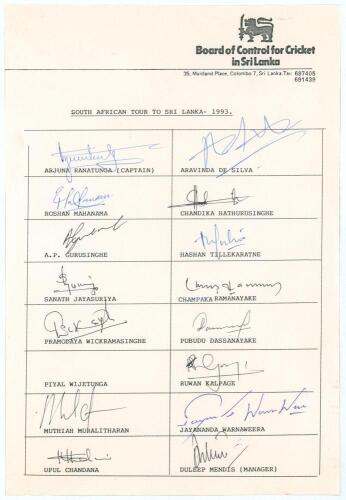 Board of Control for Cricket
in Sri Lanka
35, Maitland Place, Colombo 7, Sri Lanka. Tel: 687405
691439
SOUTH AFRICAN TOUR TO SRI LANKA- 1993.
ARJUNA RANATUNGA (CAPTAIN) ARAVINDA DE SILVA
ROSHAN MAHANAMA CHANDIKA HATHURUSINGHE
A.P. GURUSINGHE HASHAN TILLEKARATNE
SANATH JAYASURIYA CHAMPAKA RAMANAYAKE
PRAMODAYA WICKRAMASINGHE PUBUDU DASSANAYAKE
PIYAL WIJETUNGA RUWAN KALPAGE
MUTHIAH MURALITHARAN JAYANANDA WARNAWEERA
UPUL CHANDANA DULEEP MENDIS (MANAGER)